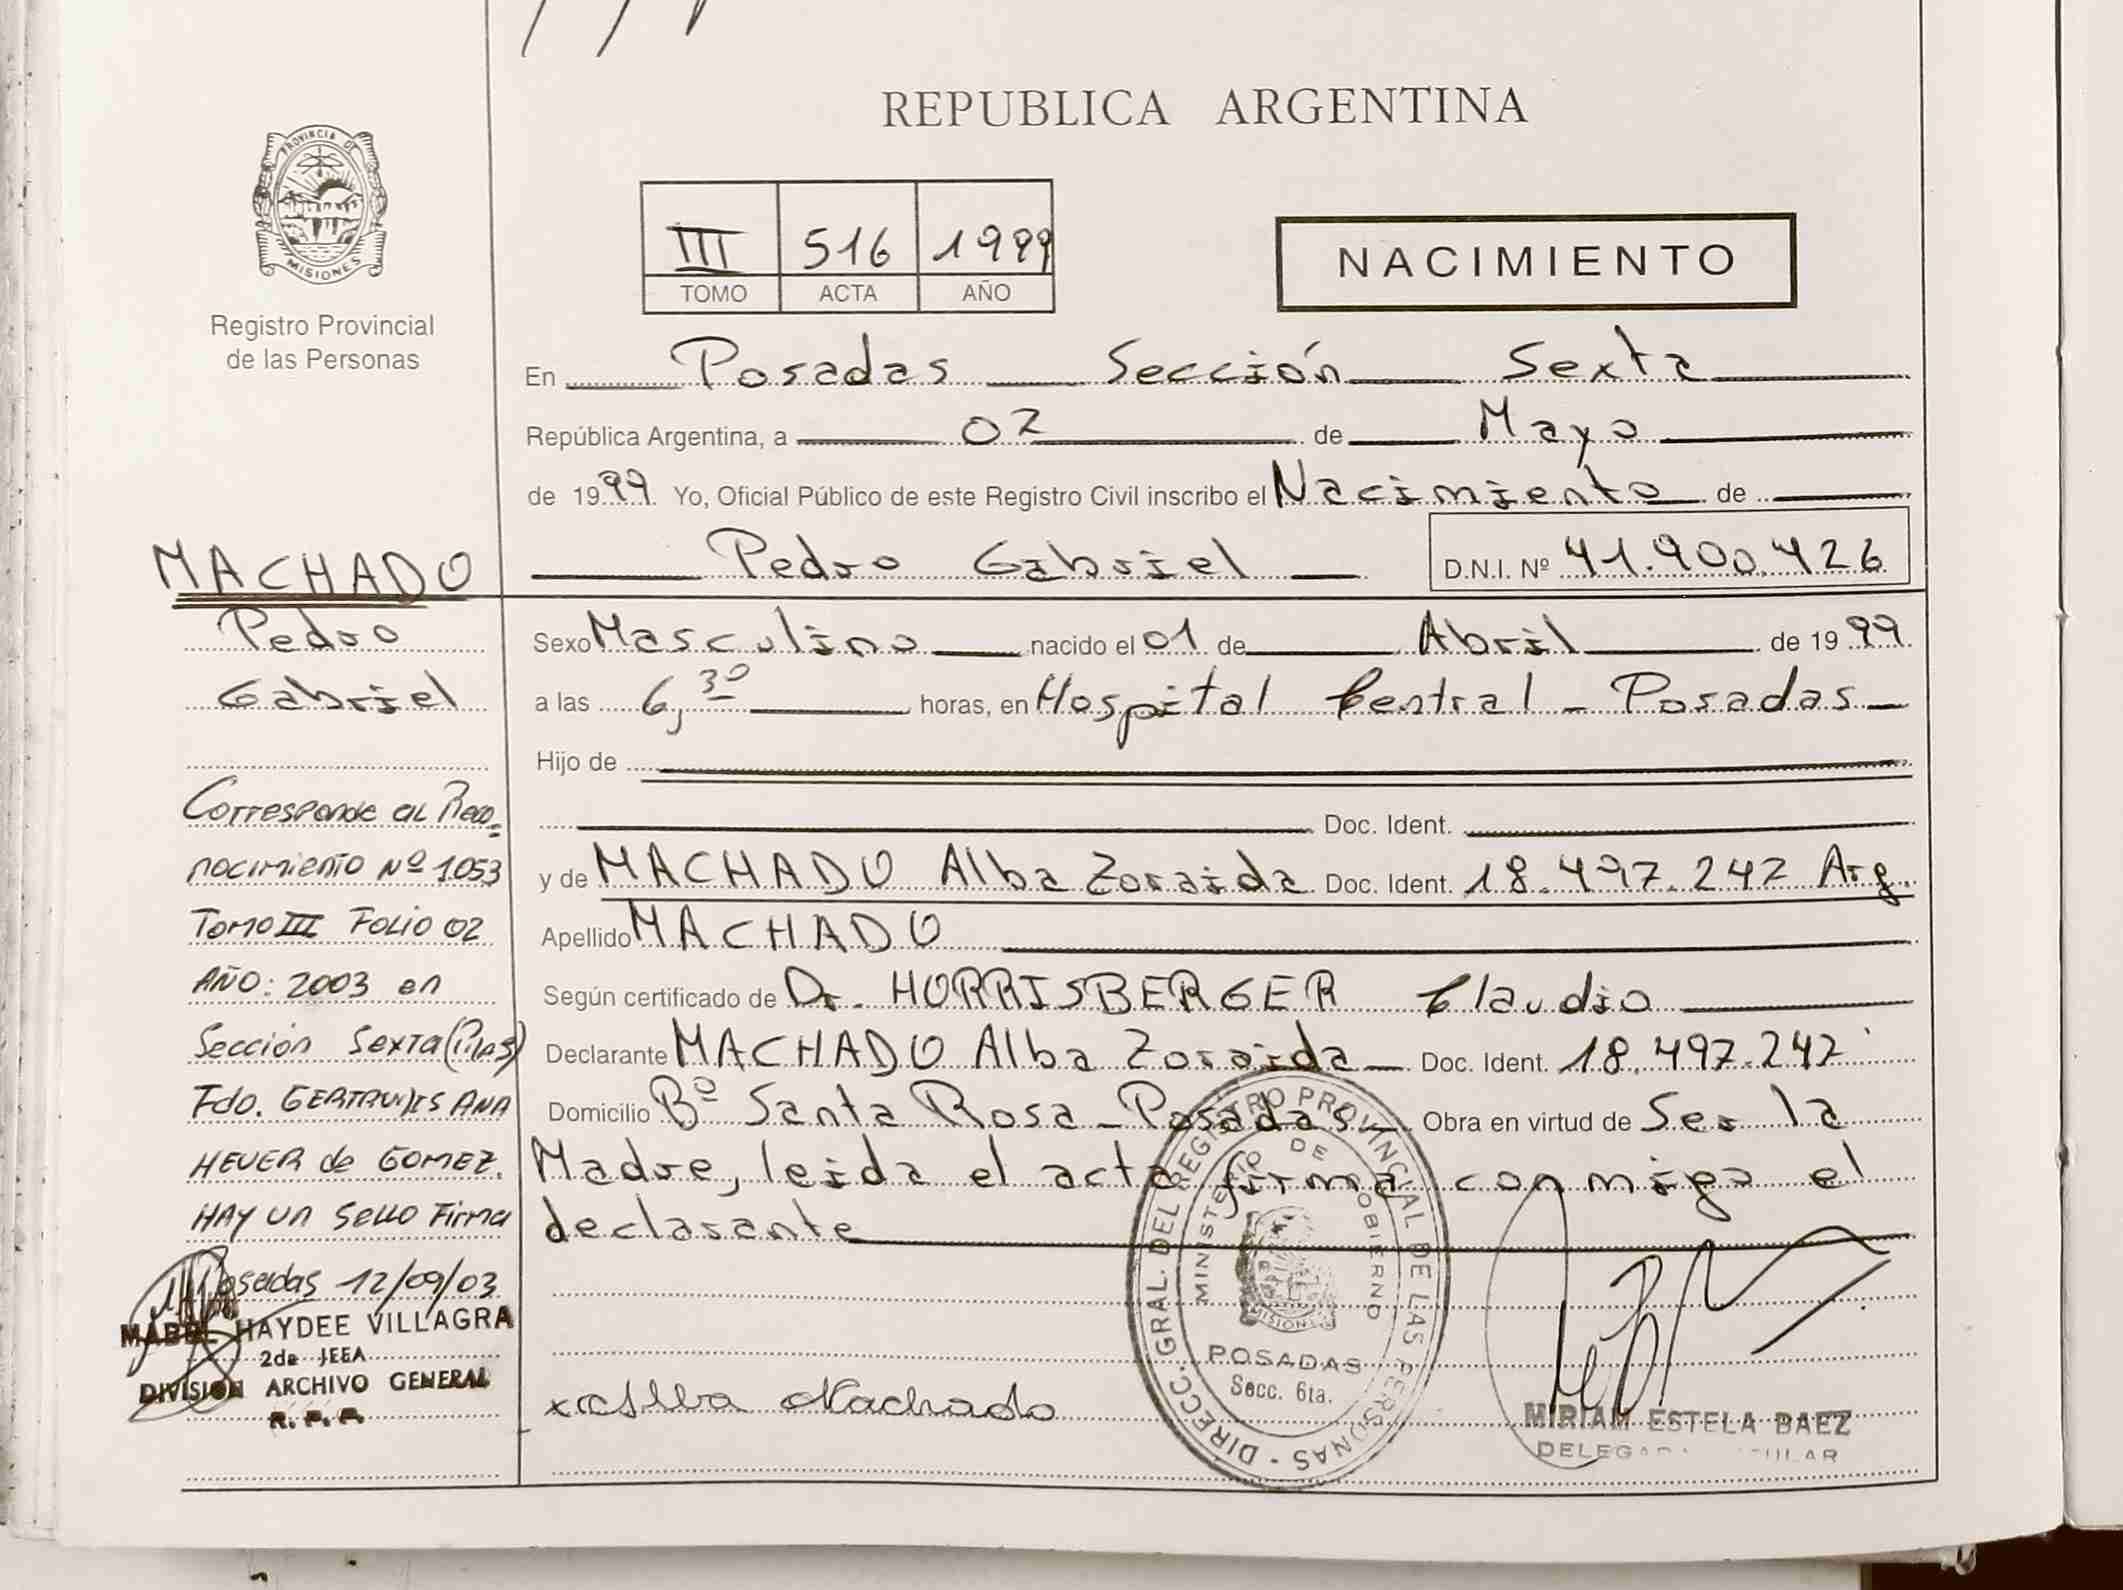 REPUBLICA ARGENTINA
PROVINCIA DE
MISIONES
Registro Provincial
de las Personas
III 516 1999
TOMO ACTA AÑO
NACIMIENTO
En Posadas Sección Sexta
República Argentina, a 02 de Mayo
de 1999 Yo, Oficial Público de este Registro Civil inscribo el Nacimiento de
Pedro Gabriel D.N.I. Nº 41.900.426
Sexo Masculino nacido el 01 de Abril de 1999
a las 6,30 horas, en Hospital Central - Posadas
Hijo de
Doc. Ident.
y de MACHADO Alba Zoraida Doc. Ident. 18.497.247 Arg.
Apellido MACHADO
Según certificado de Dr. HORRISBERGER Claudio
Declarante MACHADO Alba Zoraida Doc. Ident. 18.497.247
Domicilio Bº Santa Rosa - Posadas - Obra en virtud de Ser la
Madre, leida el acta firma conmigo el
declarante
MACHADO
Pedro
Gabriel
Corresponde al Reco-
nocimiento Nº 1053
Tomo III Folio 02
AÑO: 2003 en
Sección Sexta (Pdas)
Fdo. GERTRUDIS ANA
HEUER de GOMEZ.
HAY un Sello Firma
Posadas 12/09/03
MABEL HAYDEE VILLAGRA
2da JEFA
DIVISION ARCHIVO GENERAL
R. P. P.
x Alba Machado
DIRECC. GRAL. DEL REGISTRO PROVINCIAL DE LAS PERSONAS
MINISTERIO DE GOBIERNO
MISIONES
POSADAS
Secc. 6ta.
MIRIAM ESTELA BAEZ